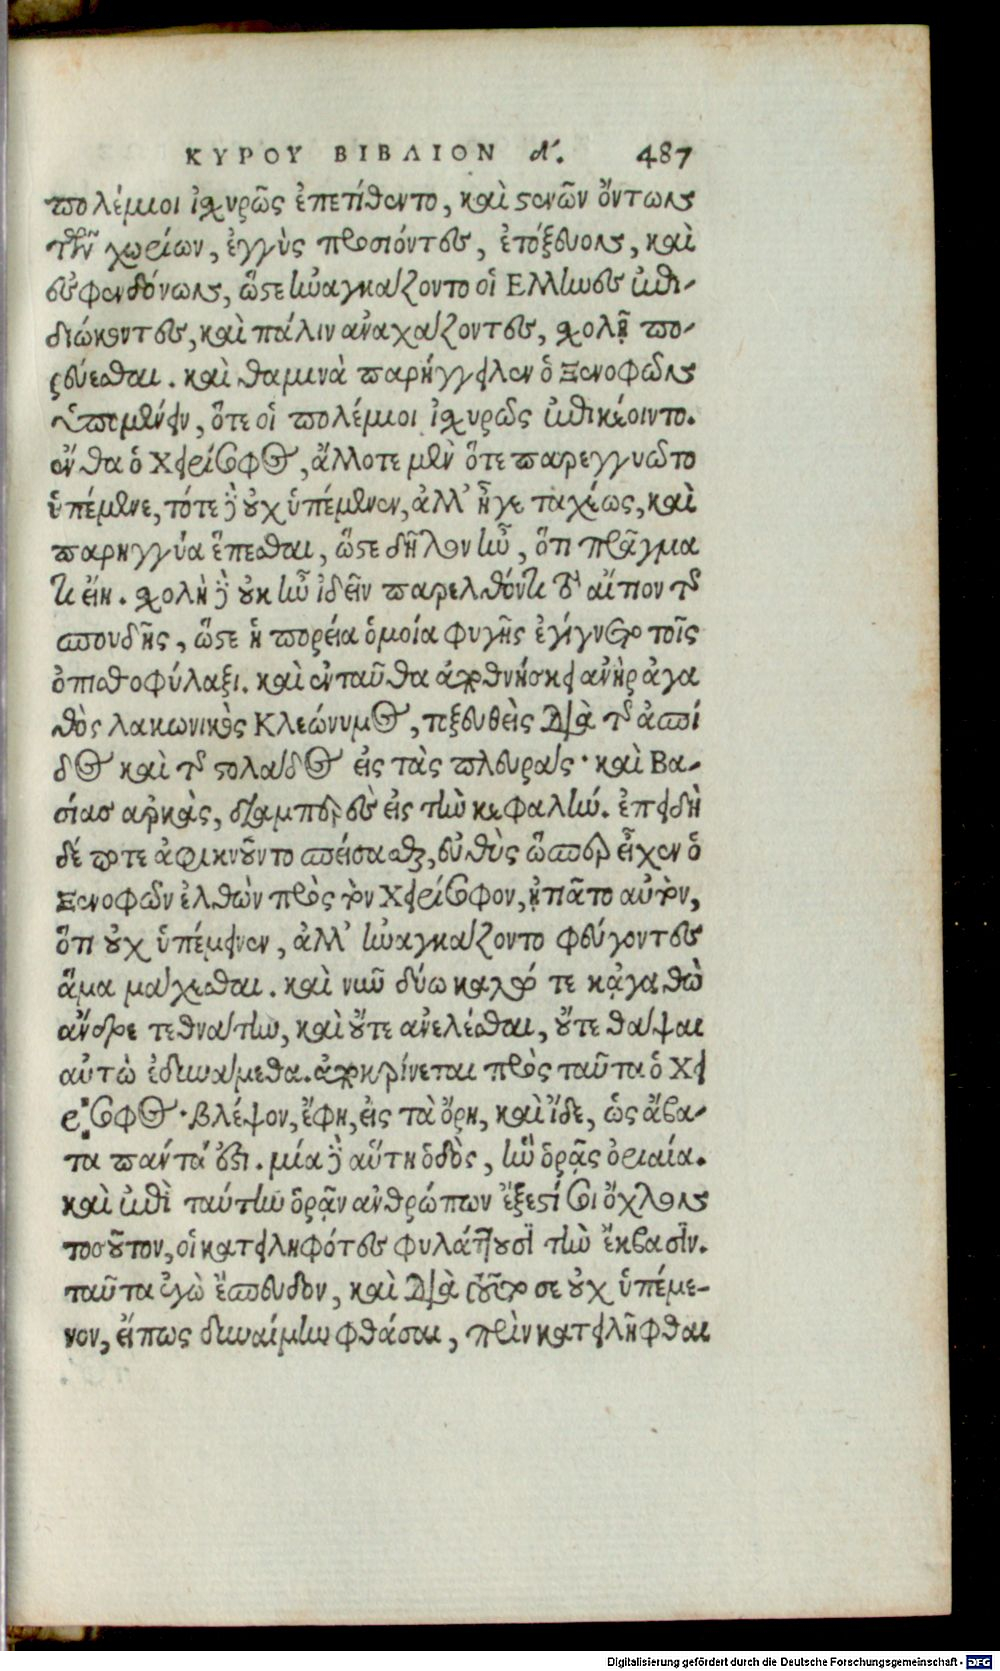 ΚΥΡΟΥ ΒΙΒΛΙΟΝ δ΄. 487
πολέμιοι ἰχυρῶς ἐπετίθεντο, καὶ στενῶν ὄντων
τῶν χωρίων, ἐγγὺς προσιόντες, ἐτόξευον, καὶ
ἐσφενδόνων, ὥστε ἠναγκάζοντο οἱ Ελληνες ἐπι-
διώκοντες, καὶ πάλιν ἀναχάζοντες, σχολῇ πο-
ρεύεσθαι. καὶ θαμινὰ παρήγγειλεν ὁ Ξενοφῶν
ὑπομένειν, ὅτε οἱ πολέμιοι ἰσχυρῶς ἐπικέοιντο.
ἔνθα ὁ Χειρίσοφος, ἄλλοτε μὲν ὅτε παρεγγυῶτο
ὑπέμενε, τότε δὲ οὐχ ὑπέμενεν, ἀλλ' ἦγε ταχέως, καὶ
παρηγγύα ἕπεσθαι, ὥστε δῆλον ἦν, ὅτι πρᾶγμα
τι εἴη. σχολὴ δὲ οὐκ ἦν ἰδεῖν παρελθόντι τὸ αἴτιον τῆς
σπουδῆς, ὥστε ἡ πορεία ὁμοία φυγῆς ἐγίγνετο τοῖς
ὀπισθοφύλαξι. καὶ ἐνταῦθα ἀποθνήσκει ἀνὴρ ἀγα
θὸς λακωνικὸς Κλεώνυμος, τοξευθεὶς διὰ τῆς ἀσπί
δος καὶ τῆς στολάδος εἰς τὰς πλευράς· καὶ Βα-
σίας αρκὰς, διαμπερὲς εἰς τὴν κεφαλήν. ἐπειδὴ
δέ ποτε ἀφικνοῦντο σπείσασθαι, εὐθὺς ὥσπερ εἶχεν ὁ
Ξενοφῶν ἐλθὼν πρὸς τὸν Χειρίσοφον, ᾐτιᾶτο αὐτὸν,
ὅτι οὐχ ὑπέμεινεν, ἀλλ' ἠναγκάζοντο φεύγοντες
ἅμα μάχεσθαι. καὶ νῦν δύο καλώ τε κᾀγαθὼ
ἄνδρε τεθνάτην, καὶ οὔτε ἀνελέσθαι, οὔτε θάψαι
αὐτὼ ἐδυνάμεθα. ἀποκρίνεται πρὸς ταῦτα ὁ Χει
ρίσοφος· βλέψον, ἔφη, εἰς τὰ ὄρη, καὶ ἴδε, ὡς ἄβα-
τα πάντα ἐστί. μία δὲ αὕτη ὁδὸς, ἣν ὁρᾷς ὀρθία.
καὶ ἐπὶ ταύτην ὁρᾷν ἀνθρώπων ἔξεστί σοι ὄχλον
τοσοῦτον, οἱ κατειληφότες φυλάττουσι τὴν ἔκβασιν.
ταῦτα ἐγὼ ἔσπευδον, καὶ διὰ τοῦτο σε οὐχ ὑπέμε-
νον, εἴπως δυναίμην φθάσαι, πρὶν κατειλῆφθαι
Digitalisierung gefördert durch die Deutsche Forschungsgemeinschaft - DFG